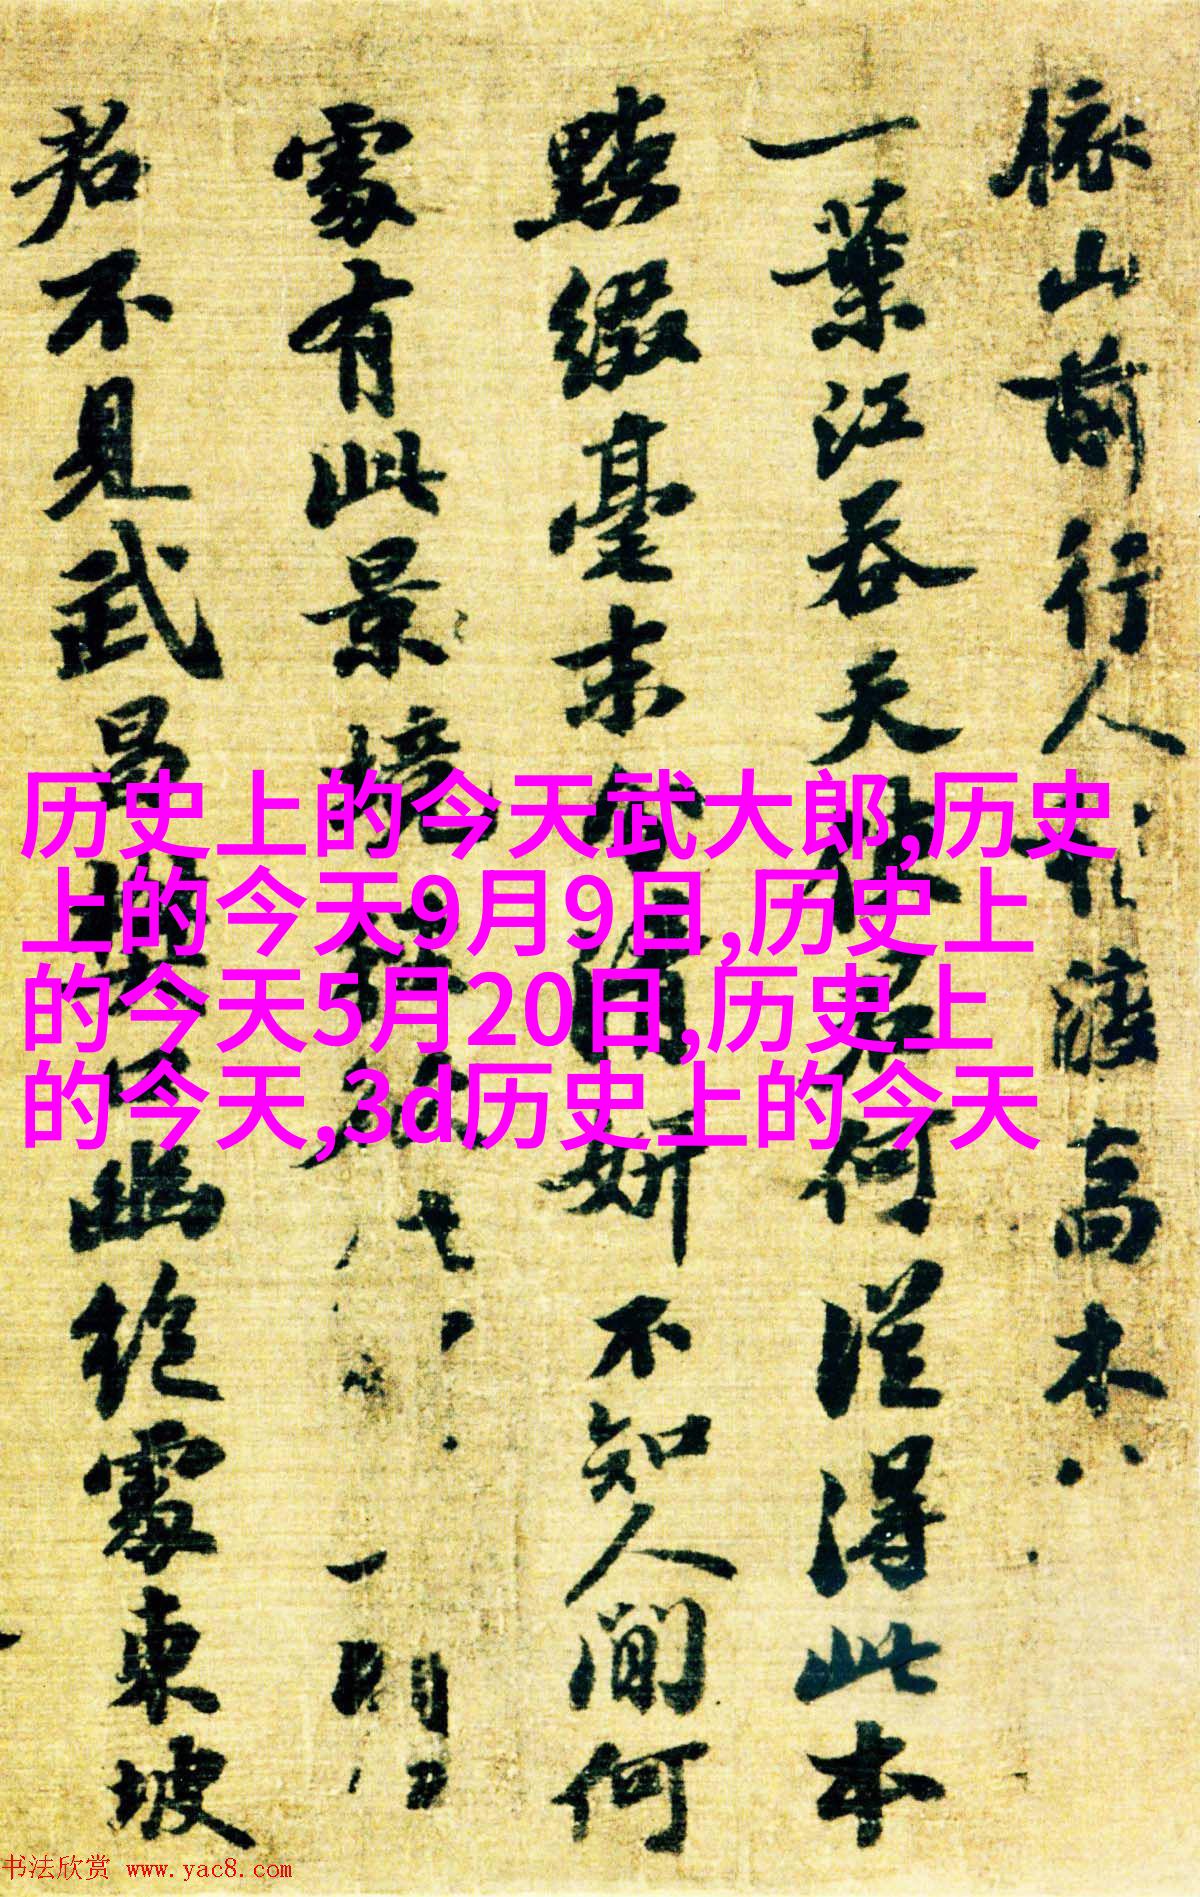 脈山前行人稍渡高木八
一葉江吞天使君何從得此本
點綴毫末分清妍不知人間何
處有此景徑
一明
君不見武昌樊口幽絕處東坡
历史上的今天武大郎,历史
上的今天9月9日,历史上
的今天5月20日,历史上
的今天,3d历史上的今天
书法欣赏 www.yac8.com